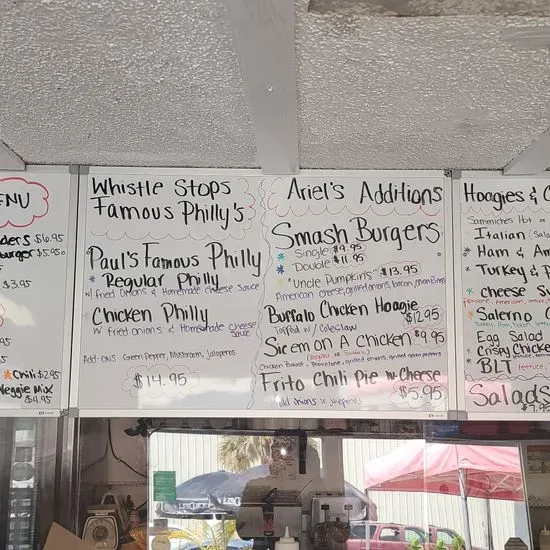 ENU
ders $6.95
urger $5.95
$3.95
Chili $2.95
Veggie Mix
$4.95
Whistle Stops
Famous Philly's
Paul's Famous Philly
* Regular Philly
w/ Fried Onions & Homemade Cheese Sauce
Chicken Philly
w/ Fried onions & Homemade cheese
Sauce
Add-ons: Green Pepper, Mushroom, Jalapenos
$14.95
Ariel's Additions
Smash Burgers
* Single $9.95
* Double $11.95
* "Uncle Pumpkins" $13.95
American cheese, grilled onions, bacon,
Buffalo Chicken Hoagie
Topped w/ Coleslaw $12.95
Sic em On A Chicken $9.95
(Regular or Buffalo)
Chicken Breast, Provolone, grilled onions, grilled green peppers
Frito Chili Pie w Cheese
Add onions or jalapenos $5.95
Hoagies & C
Sammiches Hot or
Italian
* Ham & Am
* Turkey & P
* cheese
Provolone, American,
* Salerno
Egg Salad
* Crispy Chicke
* BLT lettuce,
Salads
$7.95